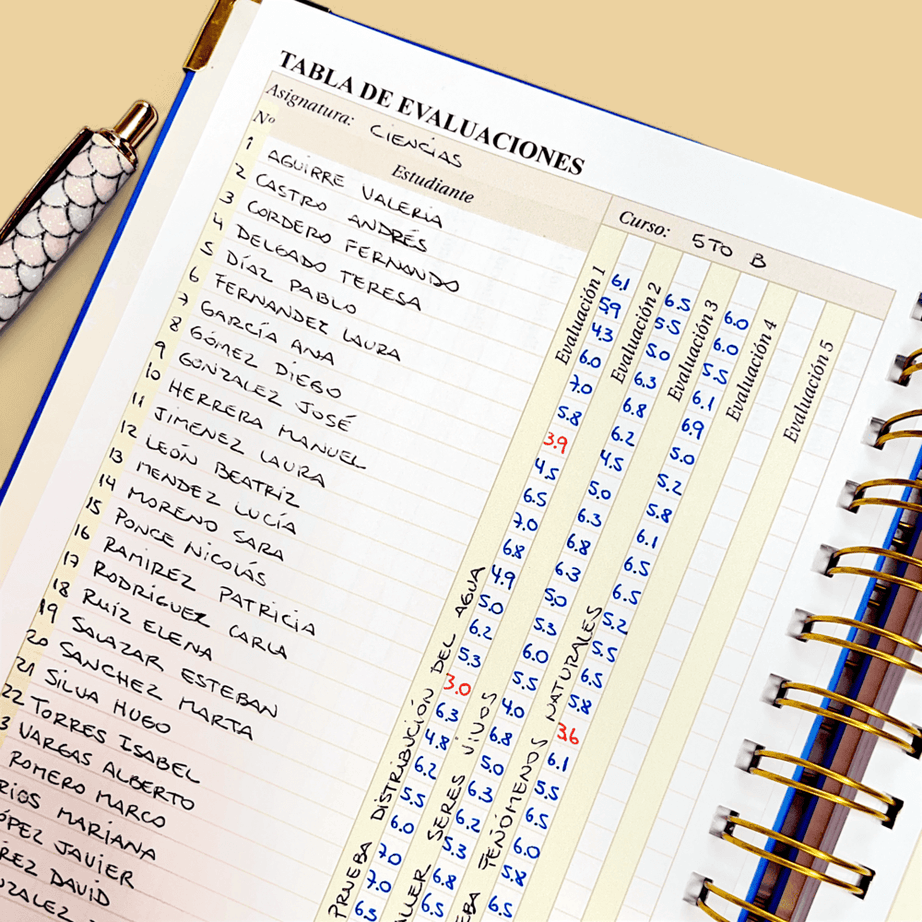 TABLA DE EVALUACIONES
Asignatura: CIENCIAS
Curso: 5TO B
Nº Estudiante Evaluación 1 Evaluación 2 Evaluación 3 Evaluación 4 Evaluación 5
1 AGUIRRE VALERIA 6.1 6.5 6.0
2 CASTRO ANDRÉS 5.9 5.5 6.0
3 CORDERO FERNANDO 4.3 5.0 5.5
4 DELGADO TERESA 6.0 6.3 6.1
5 DÍAZ PABLO 7.0 6.8 6.9
6 FERNANDEZ LAURA 5.8 6.2 5.0
7 GARCÍA ANA 3.9 4.5 5.2
8 GÓMEZ DIEGO 4.5 5.0 5.8
9 GONZALEZ JOSÉ 6.5 6.3 6.1
10 HERRERA MANUEL 7.0 6.8 6.5
11 JIMENEZ LAURA 6.8 6.3 6.5
12 LEÓN BEATRIZ 4.9 5.0 5.2
13 MENDEZ LUCÍA 5.0 5.3 5.5
14 MORENO SARA 6.2 6.0 6.5
15 PONCE NICOLÁS 5.3 5.5 5.8
16 RAMIREZ PATRICIA 3.0 4.0 3.6
17 RODRÍGUEZ CARLA 6.3 6.8 6.1
18 RUIZ ELENA 4.8 5.0 5.5
19 SALAZAR ESTEBAN 6.2 6.3 6.5
20 SANCHEZ MARTA 5.5 6.2 6.0
21 SILVA HUGO 6.0 5.3 5.8
22 TORRES ISABEL 7.0 6.8 6.5
3 VARGAS ALBERTO 7.0 6.5
ROMERO MARCO 6.3
RÍOS MARIANA
ÓPEZ JAVIER
REZ DAVID
PRUEBA DISTRIBUCIÓN DEL AGUA
ALLER SERES VIVOS
EBA FENÓMENOS NATURALES